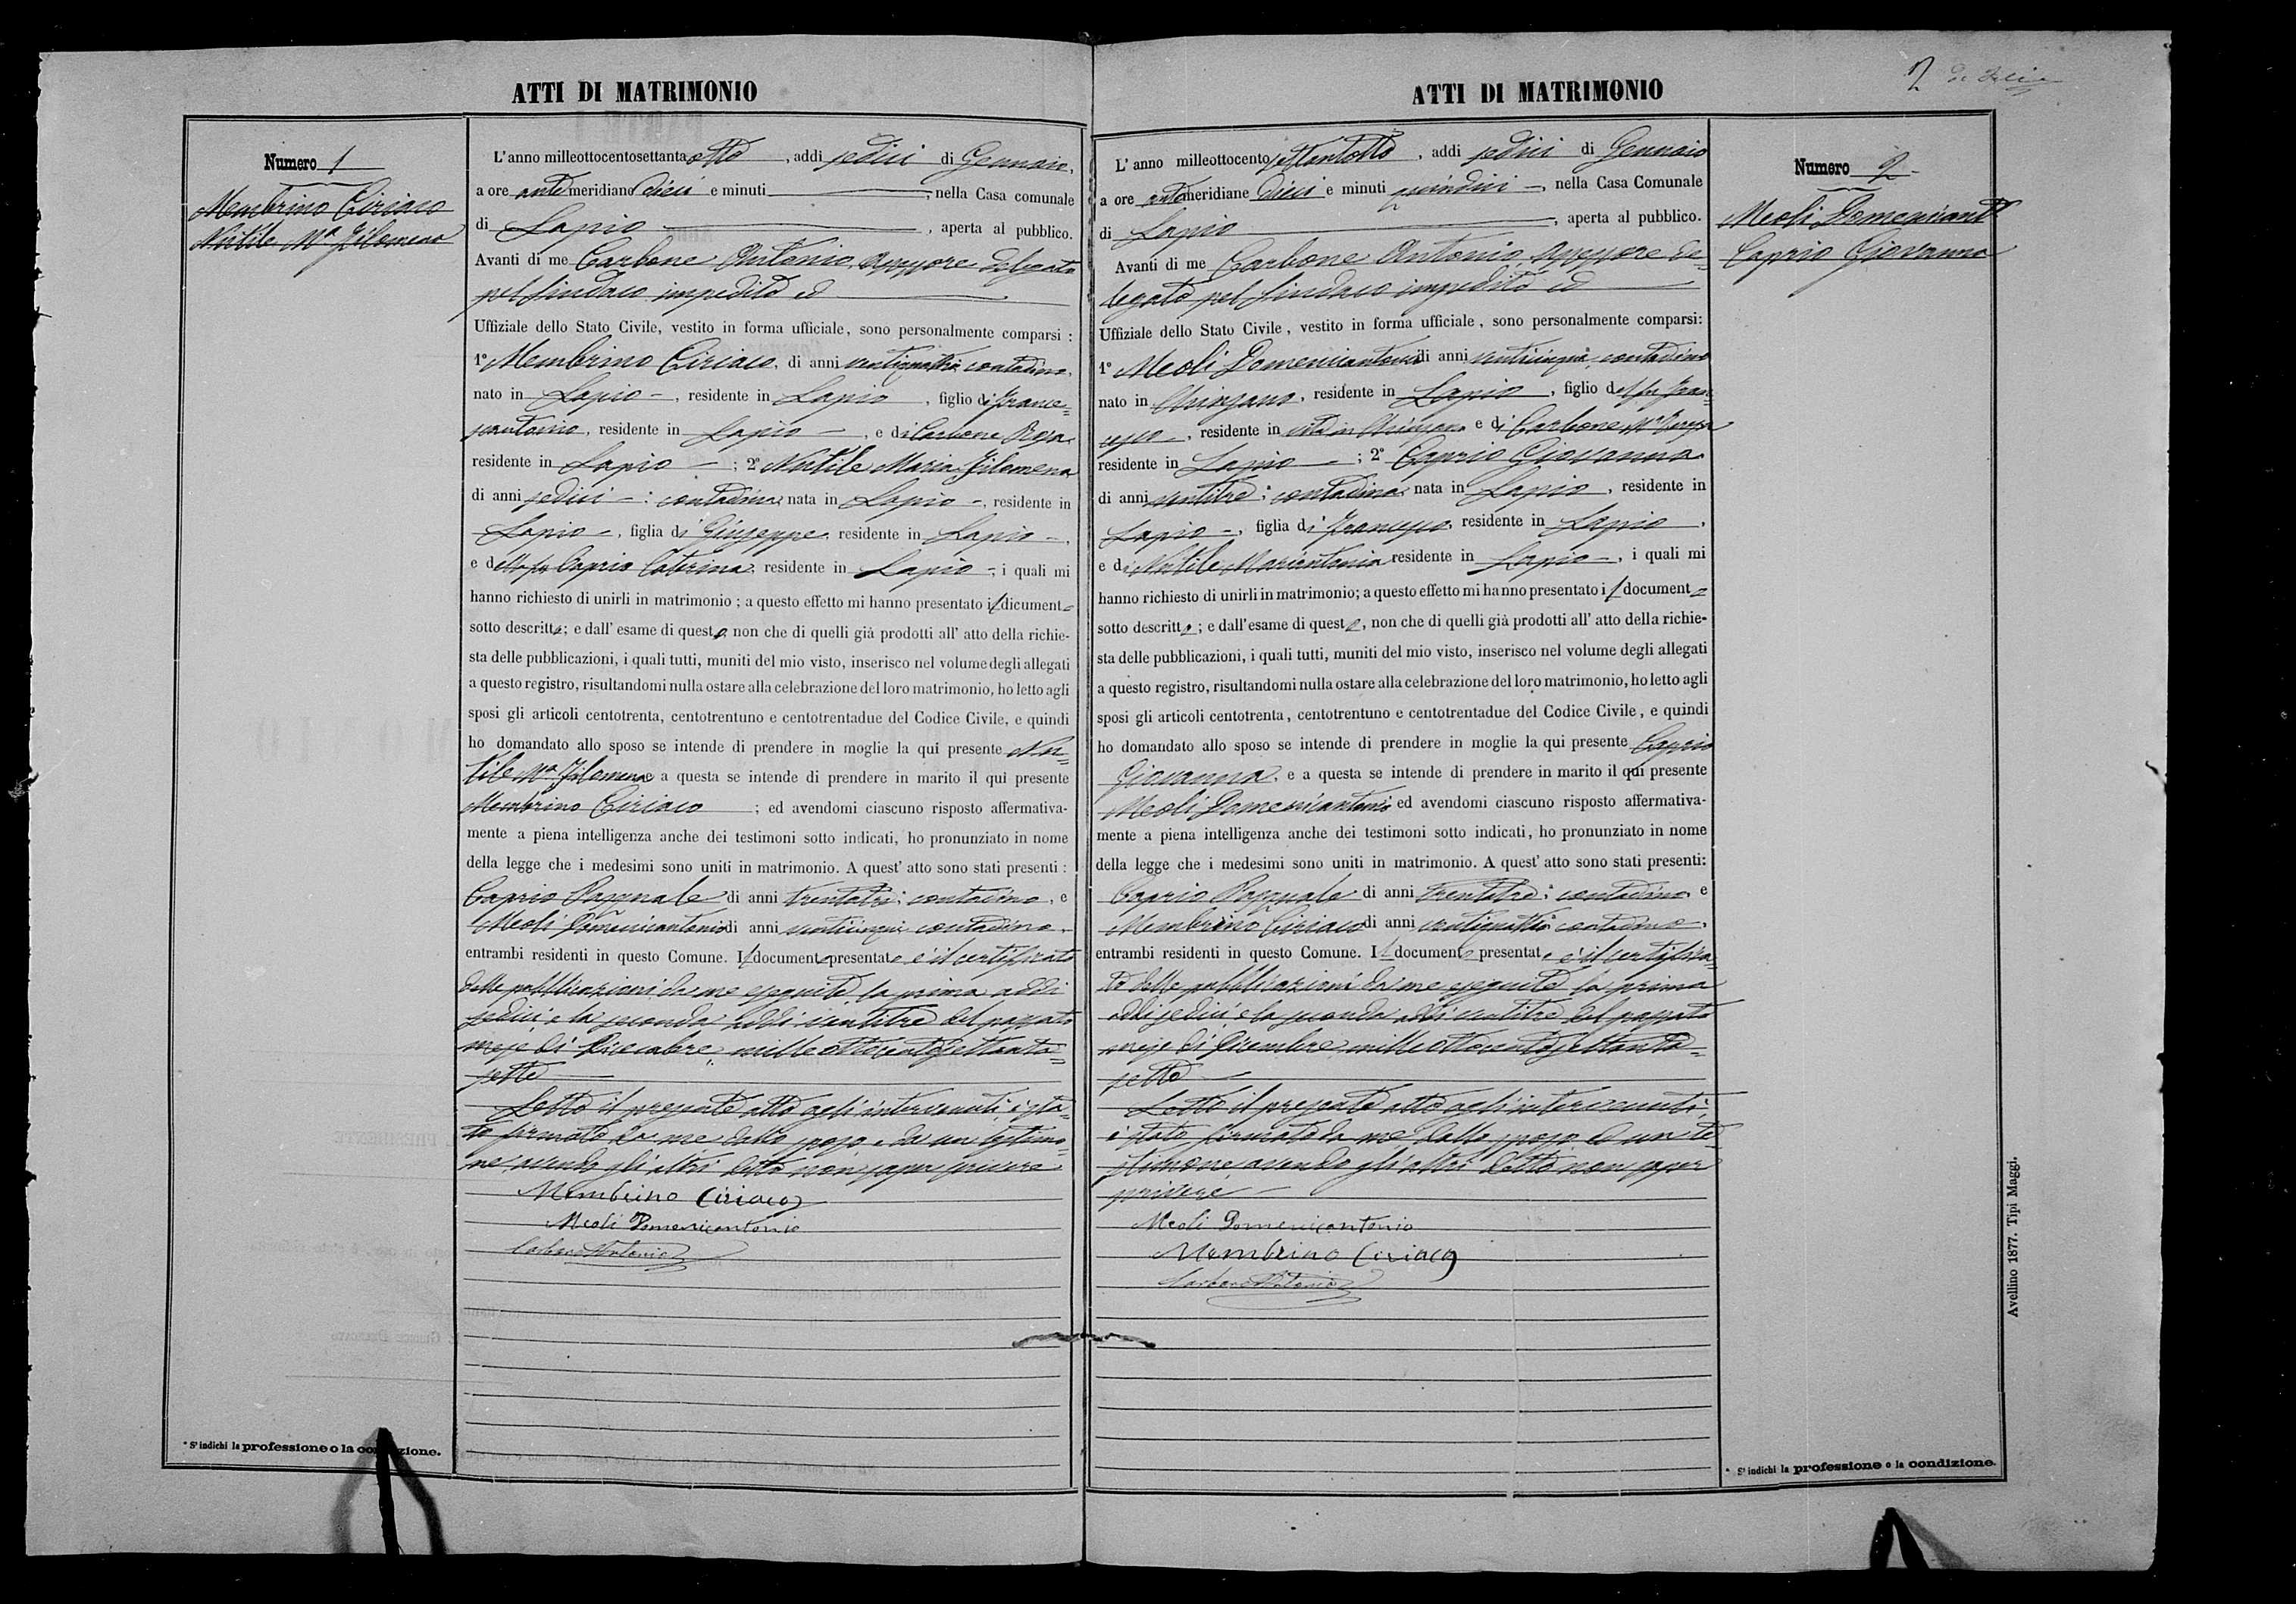 ATTI DI MATRIMONIO
Numero 1
Membrino Ciriaco
Nutile Ma Filomena
L'anno milleottocentosettantaotto, addi sedici di Gennaio,
a ore antemeridiane dieci e minuti, nella Casa comunale
di Lapio, aperta al pubblico.
Avanti di me Carbone Antonio, Assessore delegato
pel Sindaco impedito ed
Uffiziale dello Stato Civile, vestito in forma ufficiale, sono personalmente comparsi :
1º Membrino Ciriaco, di anni ventiquattro contadino,
nato in Lapio, residente in Lapio, figlio di France=
scantonio, residente in Lapio, e di Carbone Rosa
residente in Lapio ; 2º Nutile Maria Filomena
di anni sedici : contadina nata in Lapio, residente in
Lapio, figlia di Giuseppe, residente in Lapio,
e della fu Caprio Caterina, residente in Lapio ; i quali mi
hanno richiesto di unirli in matrimonio ; a questo effetto mi hanno presentato il dicumento
sotto descritto; e dall' esame di questo, non che di quelli già prodotti all' atto della richie-
sta delle pubblicazioni, i quali tutti, muniti del mio visto, inserisco nel volume degli allegati
a questo registro, risultandomi nulla ostare alla celebrazione del loro matrimonio, ho letto agli
sposi gli articoli centotrenta, centotrentuno e centotrentadue del Codice Civile, e quindi
ho domandato allo sposo se intende di prendere in moglie la qui presente Nu=
tile Ma Filomena e a questa se intende di prendere in marito il qui presente
Membrino Ciriaco ; ed avendomi ciascuno risposto affermativa-
mente a piena intelligenza anche dei testimoni sotto indicati, ho pronunziato in nome
della legge che i medesimi sono uniti in matrimonio. A quest' atto sono stati presenti :
Caprio Pasquale di anni trentatre ; contadino, e
Meoli Domenicantonio di anni venticinque contadino,
entrambi residenti in questo Comune. Il documento presentato è il certificato
delle pubblicazioni da me eseguite la prima addi
sedici, e la seconda addi ventitre del passato
mese di Dicembre, milleottocentosettanta=
sette
Letto il presente atto agli intervenuti è sta=
to firmato da me dallo sposo e da un testimo=
ne avendo gli altri detto non saper scrivere
Membrino Ciriaco
Meoli Domenicantonio
Carbone Antonio
* S'indichi la professione o la condizione.
ATTI DI MATRIMONIO
2
Numero 2
Meoli Domenicant
Caprio Giovanna
L' anno milleottocentosettantotto, addi sedici di Gennaio
a ore antemeridiane dieci e minuti quindici, nella Casa Comunale
di Lapio, aperta al pubblico.
Avanti di me Carbone Antonio, Assessore de=
legato pel Sindaco impedito ed
Uffiziale dello Stato Civile, vestito in forma ufficiale, sono personalmente comparsi:
1º Meoli Domenicantonio di anni venticinque, contadino
nato in, residente in Lapio, figlio del fu Fran=
cesco, residente in e di Carbone Ma Teresa
residente in Lapio ; 2º Caprio Giovanna
di anni ventitre ; contadina nata in Lapio, residente in
Lapio, figlia di Francesco, residente in Lapio,
e di Nutile Mariantonia residente in Lapio, i quali mi
hanno richiesto di unirli in matrimonio; a questo effetto mi hanno presentato il documento
sotto descritto ; e dall'esame di questo, non che di quelli già prodotti all' atto della richie-
sta delle pubblicazioni, i quali tutti, muniti del mio visto, inserisco nel volume degli allegati
a questo registro, risultandomi nulla ostare alla celebrazione del loro matrimonio, ho letto agli
sposi gli articoli centotrenta, centotrentuno e centotrentadue del Codice Civile, e quindi
ho domandato allo sposo se intende di prendere in moglie la qui presente Caprio
Giovanna, e a questa se intende di prendere in marito il qui presente
Meoli Domenicantonio ed avendomi ciascuno risposto affermativa-
mente a piena intelligenza anche dei testimoni sotto indicati, ho pronunziato in nome
della legge che i medesimi sono uniti in matrimonio. A quest' atto sono stati presenti:
Caprio Pasquale di anni trentatre ; contadino e
Membrino Ciriaco di anni ventiquattro contadino,
entrambi residenti in questo Comune. Il documento presentato è il certifica=
to delle pubblicazioni da me eseguite la prima
addi sedici, e la seconda addi ventitre del passato
mese di Dicembre, milleottocentosettanta=
sette
Letto il presente atto agli intervenuti,
è stato firmato da me dallo sposo ed un te=
stimone avendo gli altri detto non saper
scrivere
Meoli Domenicantonio
Membrino Ciriaco
Carbone Antonio
* S'indichi la professione o la condizione.
Avellino 1877. Tipi Maggi.